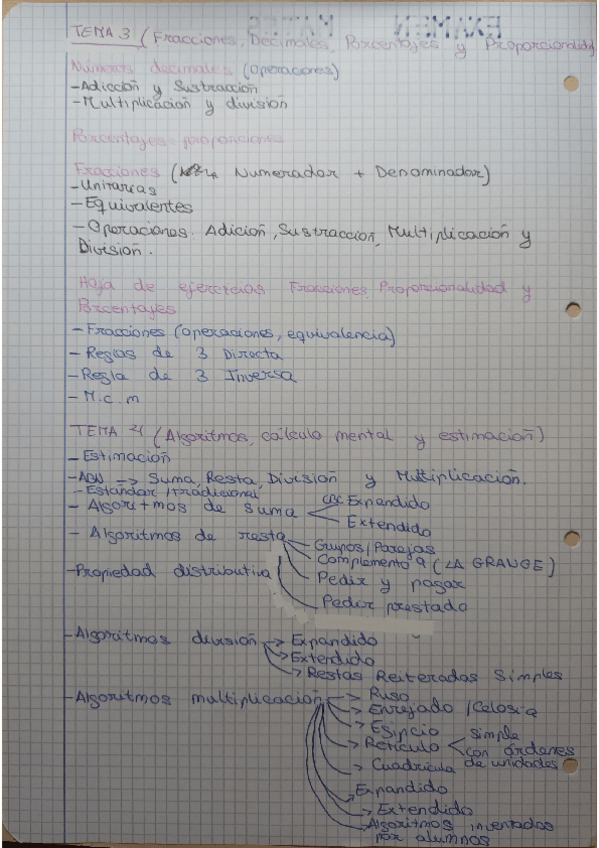 TEMA 3 (Fracciones, Decimales, Porcentajes y Proporcionalidad)
Números decimales (operaciones)
- Adicción y Sustracción
- Multiplicación y división
Porcentajes - proporciones
Fracciones ( Numerador + Denominador)
- Unitarias
- Equivalentes
- Operaciones. Adición, Sustracción, Multiplicación y
División.
Hoja de ejercicios Fracciones, Proporcionalidad y
Porcentajes
- Fracciones (operaciones, equivalencia)
- Reglas de 3 Directa
- Regla de 3 Inversa
- M.c.m
TEMA 4 (Algoritmos, cálculo mental y estimación)
- Estimación
- ABN -> Suma, Resta, División y Multiplicación.
- Estándar / tradicional
- Algoritmos de suma
Expandido
Extendido
- Algoritmos de resta
Grupos/Parejas
Complemento 9 (LA GRANGE)
Pedir y pagar
Pedir prestado
- Propiedad distributiva
- Algoritmos división -> Expandido
-> Extendido
-> Restas Reiteradas Simples
- Algoritmos multiplicación -> Ruso
-> Enrejado / Celosía
-> Egipcio
-> Retículo
simple
con órdenes
de unidades
-> Cuadrícula
-> Expandido
-> Extendido
-> Algoritmos inventados
por alumnos